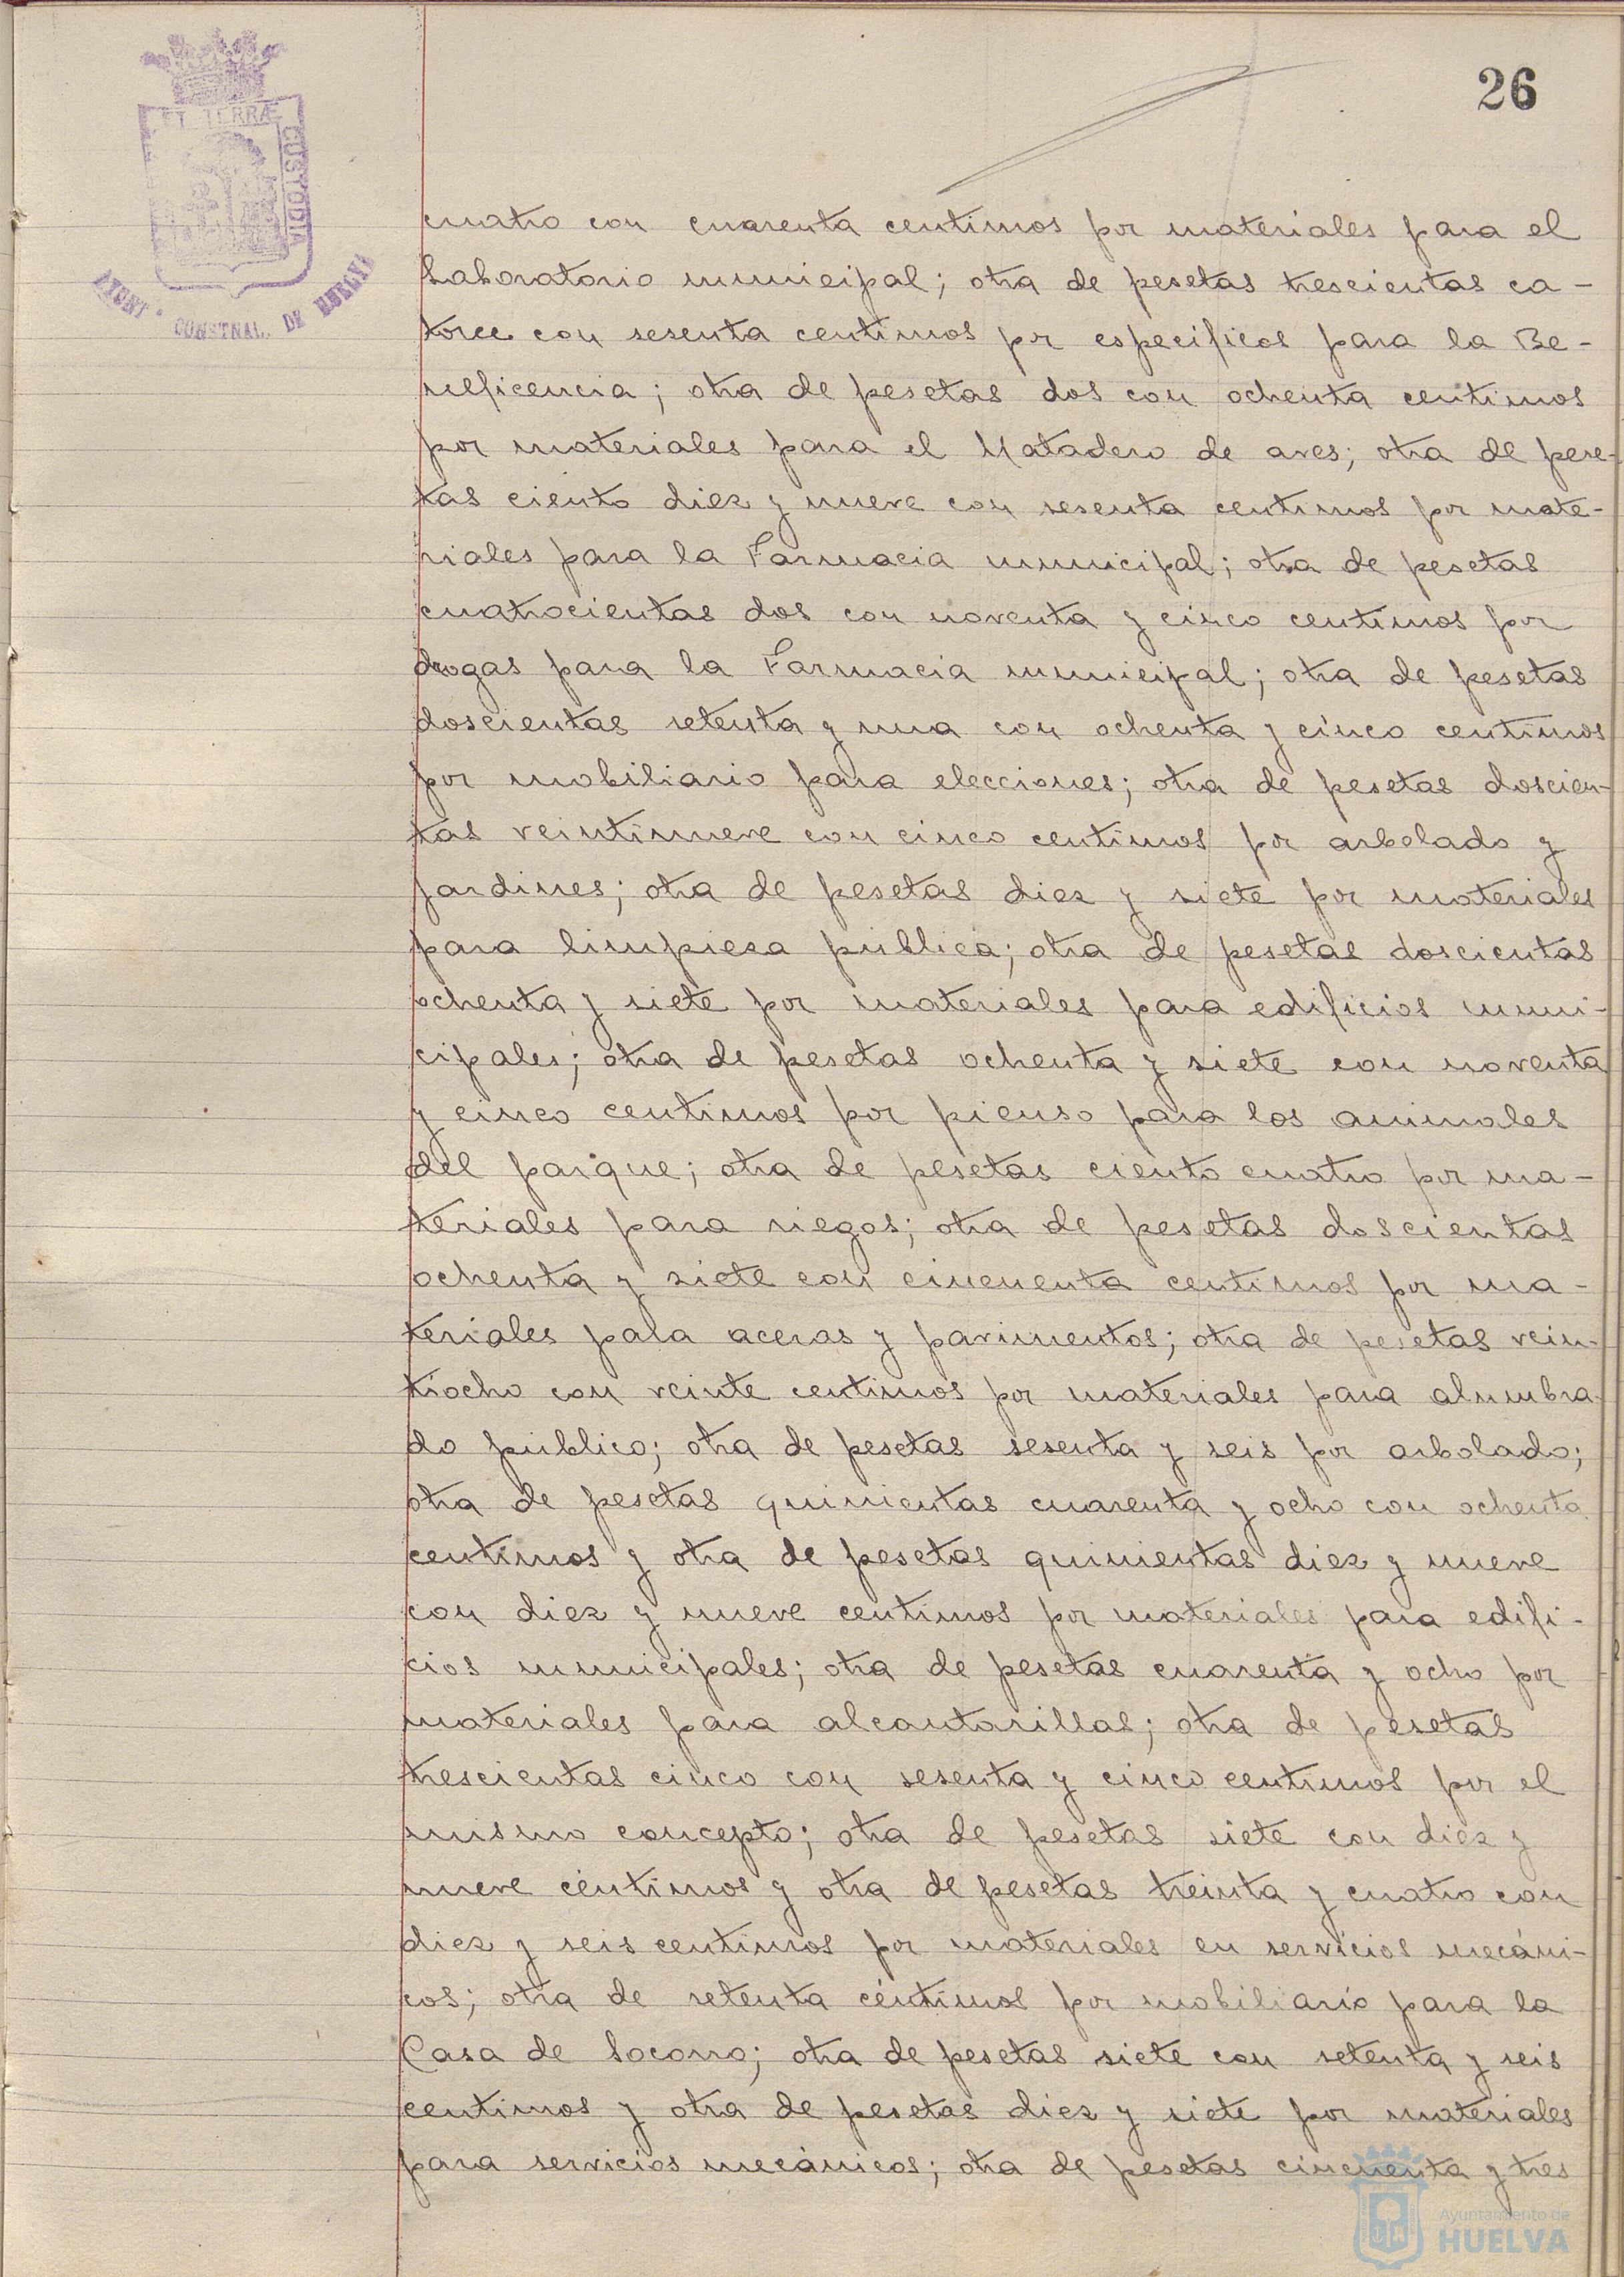 26
ET TERRÆ
CUSTODIA
AYUNT.º CONSTNAL. DE HUELVA
cuatro con cuarenta centimos por materiales para el
Laboratorio municipal; otra de pesetas trescientas ca-
torce con sesenta centimos por especificos para la Be-
neficencia; otra de pesetas dos con ochenta centimos
por materiales para el Matadero de aves; otra de pese-
tas ciento diez y nueve con sesenta centimos por mate-
riales para la Farmacia municipal; otra de pesetas
cuatrocientas dos con noventa y cinco centimos por
drogas para la Farmacia municipal; otra de pesetas
doscientas setenta y una con ochenta y cinco centimos
por mobiliario para elecciones; otra de pesetas doscien-
tas veintinueve con cinco centimos por arbolado y
jardines; otra de pesetas diez y siete por materiales
para limpieza pública; otra de pesetas doscientas
ochenta y siete por materiales para edificios muni-
cipales; otra de pesetas ochenta y siete con noventa
y cinco centimos por pienso para los animales
del parque; otra de pesetas ciento cuatro por ma-
teriales para riegos; otra de pesetas doscientas
ochenta y siete con cincuenta centimos por ma-
teriales para aceras y pavimentos; otra de pesetas vein-
tiocho con veinte centimos por materiales para alumbra-
do público; otra de pesetas sesenta y seis por arbolado;
otra de pesetas quinientas cuarenta y ocho con ochenta
centimos y otra de pesetas quinientas diez y nueve
con diez y nueve centimos por materiales para edifi-
cios municipales; otra de pesetas cuarenta y ocho por
materiales para alcantarillas; otra de pesetas
trescientas cinco con sesenta y cinco centimos por el
mismo concepto; otra de pesetas siete con diez y
nueve céntimos y otra de pesetas treinta y cuatro con
diez y seis centimos por materiales en servicios mecáni-
cos; otra de setenta céntimos por mobiliario para la
Casa de Socorro; otra de pesetas siete con setenta y seis
centimos y otra de pesetas diez y siete por materiales
para servicios mecánicos; otra de pesetas cincuenta y tres
Ayuntamiento de
HUELVA